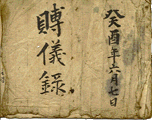 癸酉年六月七日
賻儀錄